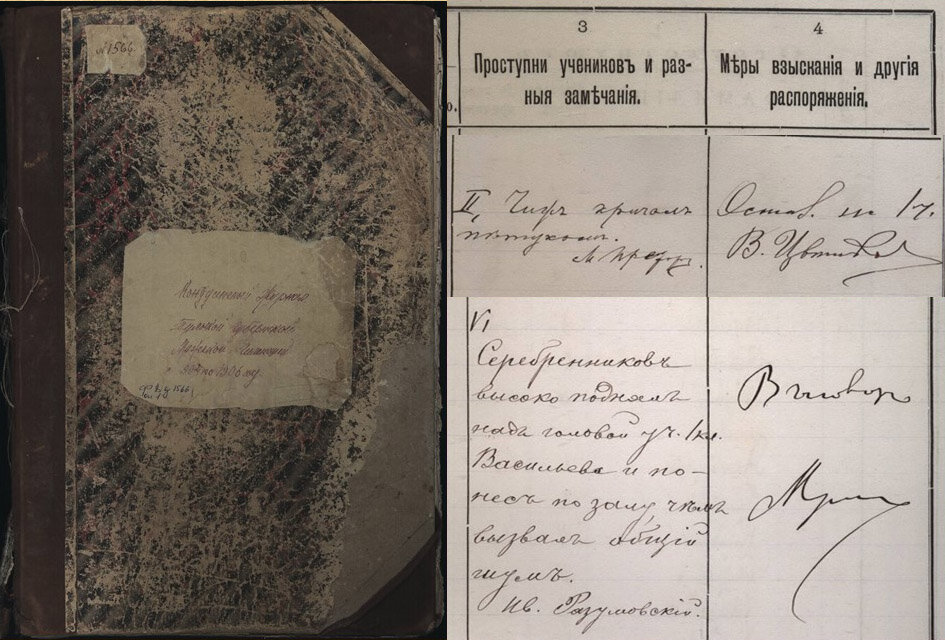 N 1566.
Кондуитный журнал
Тульской
Мужской Гимназии
с по 1906 год.
1566
3
Проступки учениковъ и раз-
ныя замѣчанія.
4
Мѣры взысканія и другія
распоряженія.
II, кричалъ
пѣтухомъ.
Остав. на 1 ч.
В. Цвѣтковъ
VI
Серебренниковъ
высоко поднялъ
надъ головой уч. I кл.
Васильева и по-
несъ по залу чѣмъ
вызвалъ общій
шумъ.
Ив. Разумовскій.
Выговоръ